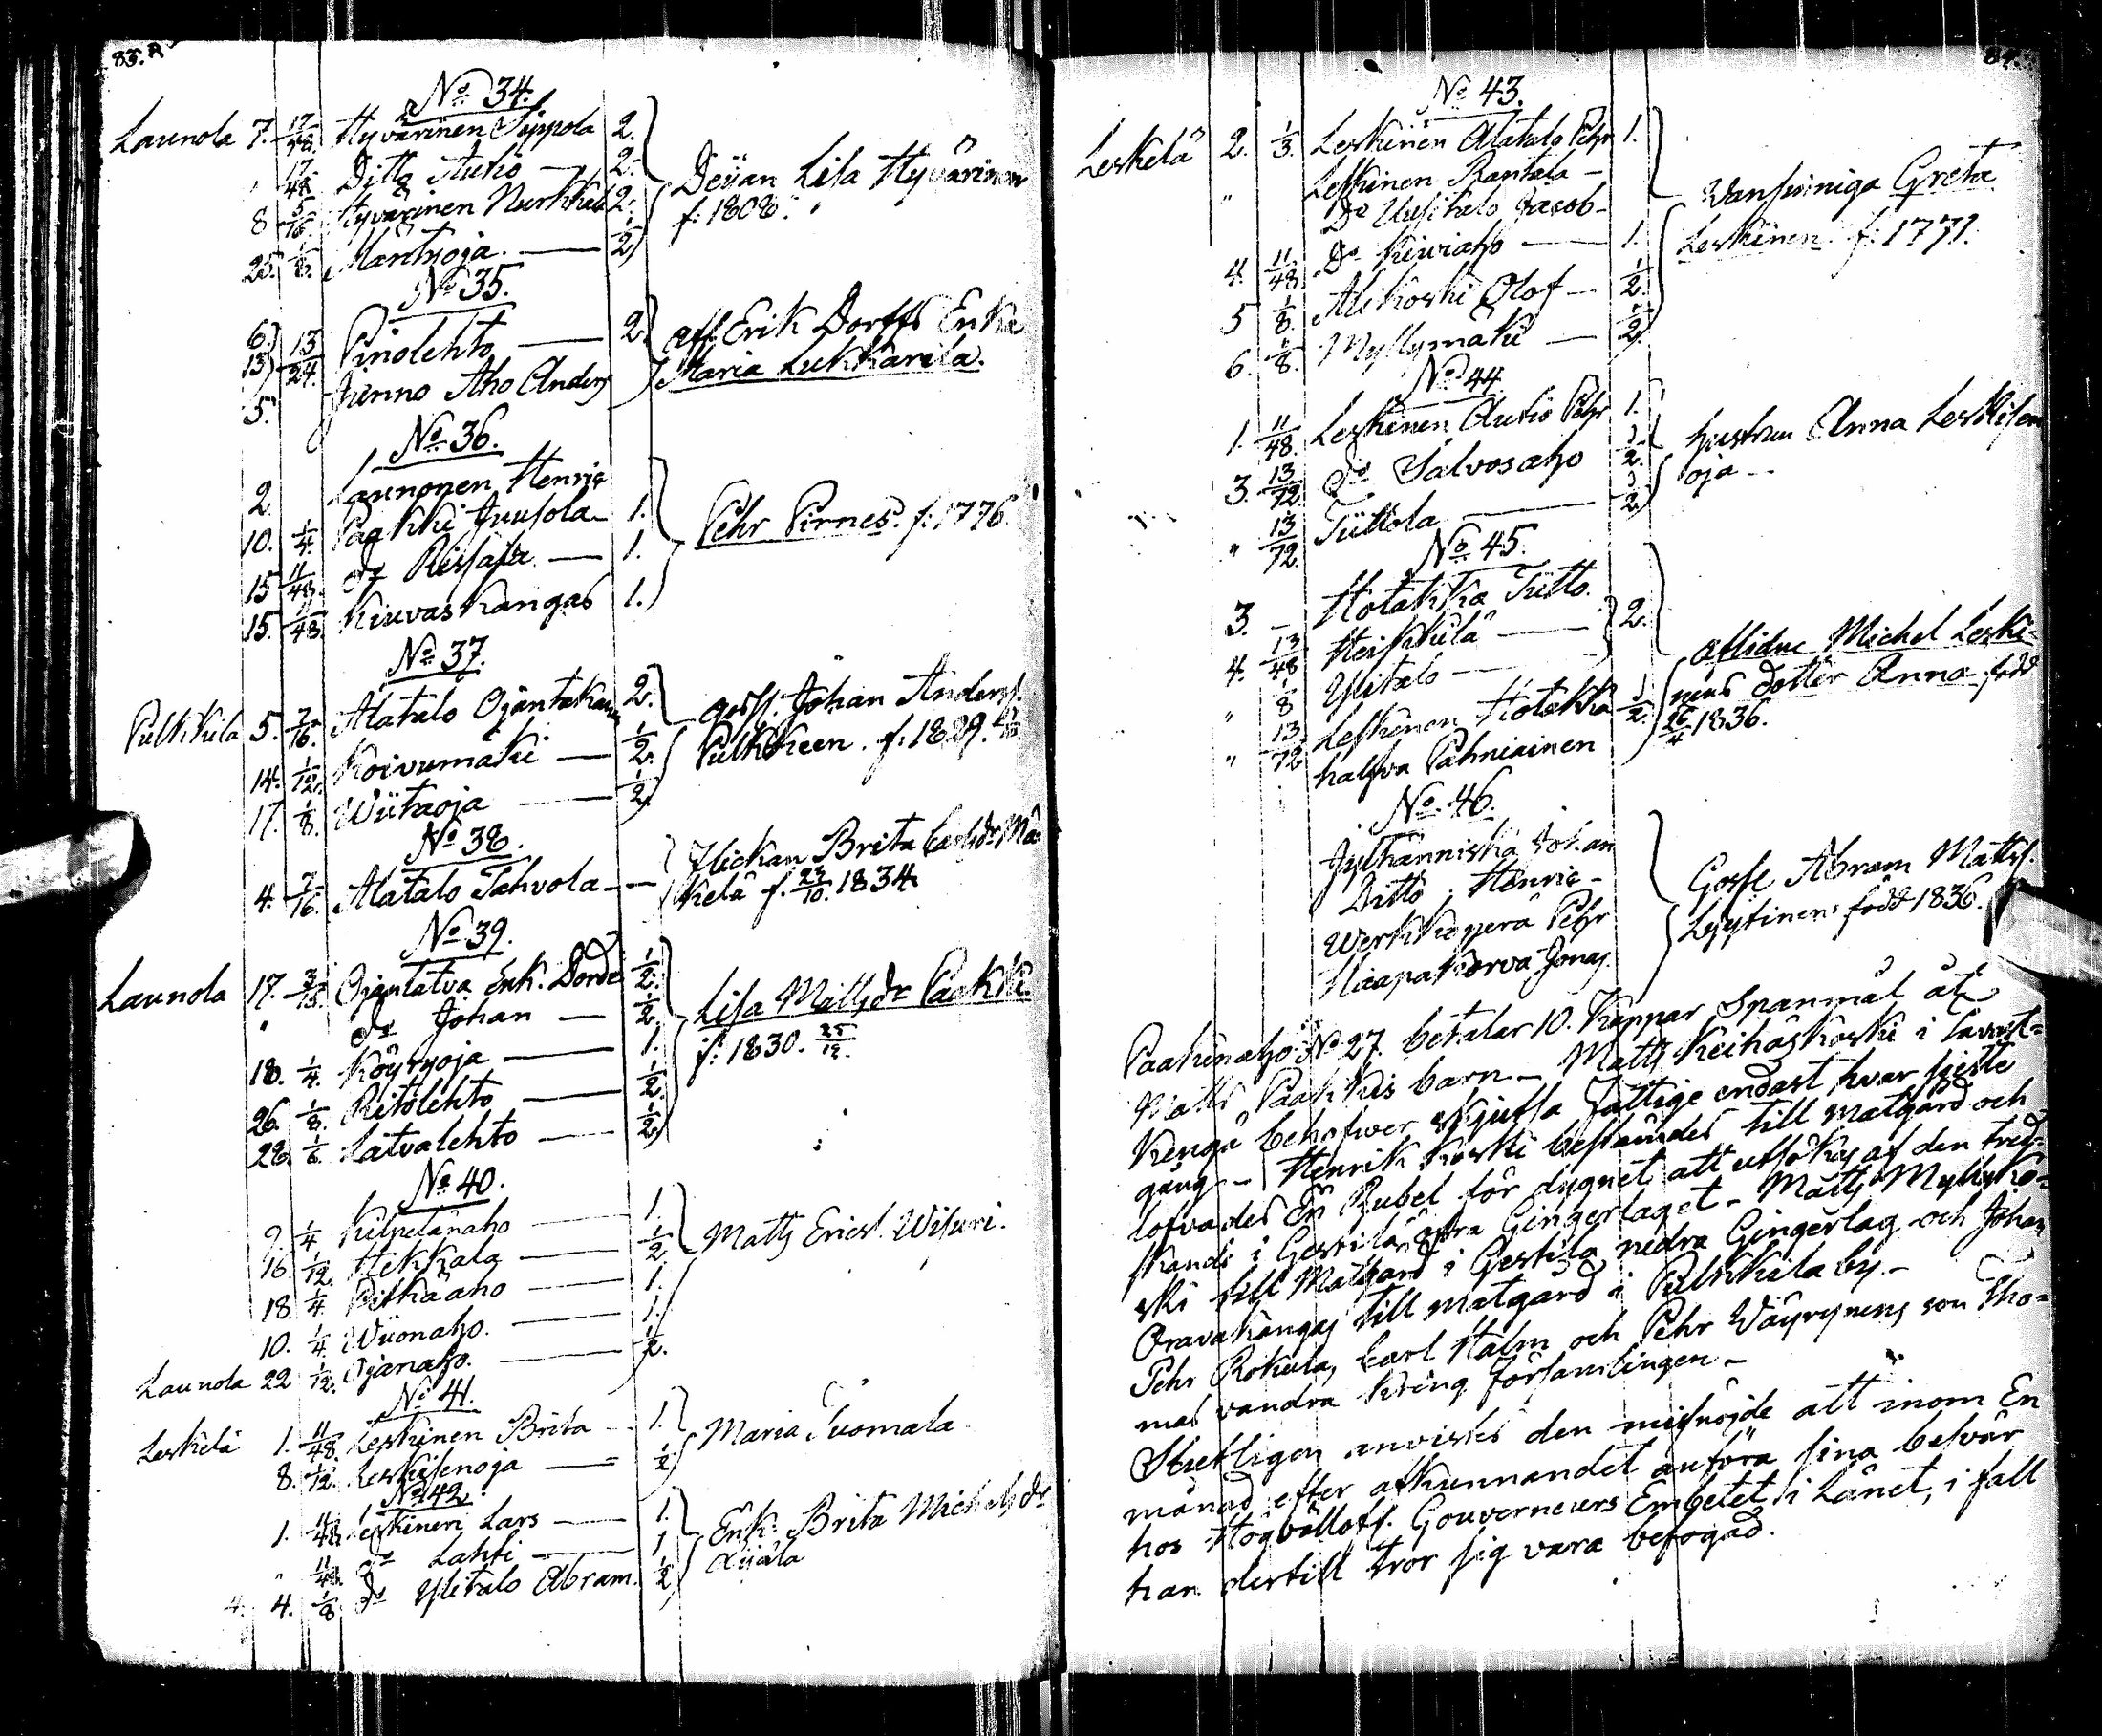 83.
No 34.
Launola 7. 17/48. Hyvärinen Seppola 2.
" 17/48. Ditto Auho — 2.
8 5/16. Hyvärinen Nurkkala 2.
25. 1/8. Mäntyoja. — 1/2
Pigan Lisa Hyvärinen
f. 1808.
No 35.
6. 13) 13/24. Pinolehto — 2.
5. Junno Aho Anders
afl. Erik Dorffs Enka
Maria Lukkarila.
No 36.
2 Launonen Henric
10. 1/4. Paakki Juusola — 1.
15 11/48. do Rissala — 1.
15. /48. Kiuvaskangas 1.
Pehr Pirnes. f. 1776
No 37.
Pulkkila 5. 7/16. Alatalo Ojantakanen 2.
14. 1/12. Koivumäki — 1/2.
17. 1/8. Wiitaoja — 1/2
goss. Johan Anders.
Pulkkinen. f. 1829.
No 38.
4. 7/16. Alatalo Tahvola —
Flickan Brita Carlsdr Mä-
kelä f. 23/10. 1834
No 39.
Launola 17. 3/16. Ojantatva Enk. Dordi 1/2.
" do Johan — 1/2.
18. 1/4. Köyryoja — 1.
26. 1/8. Reitolehto — 1/2.
28. 1/6. Latvalehto — 1/2
Lisa Mattsdr Paakki
f. 1830. 25/12.
No 40.
9. 1/4 Kilpelänaho — 1.
16. 1/12. Hekkala — 1/2
18. 1/4 Pitkäaho — 1.
10. 1/4. Wuonaho. — 1.
Launola 22 1/12. Ojanaho. — 1/2.
Matts Erics. Wisuri.
No 41.
Leskelä 1. 11/48. Leskinen Brita — 1.
8. 1/12. Leskisenoja — 1/2
Maria Tuomala
No 42.
1. 11/48. Leskinen Lars — 1.
" 11/48. do Lahti — 1
4. 4. 1/8 do Ylitalo Abram. 1/2
Enk. Brita Michelsdr
Alijäla
84.
No 43.
Leskelä 2. 1/3. Leskinen Alatalo Pehr 1.
Leskinen Rantala —
" do Uusitalo Jacob —
4. 11/48. do Kiviaho — 1.
5 1/8. Alikoski Olof — 1/2.
6. 1/8. Myllymäki — 1/2.
Wansinniga Greta
Leskinen. f. 1771.
No 44.
1. 11/48. Leskinen Autio Pehr 1.
3. 13/72. do Salvosaho 1/2.
" 13/72. Tiittola — 1/2
hustrun Anna Leskisen
oja —
No 45.
3. — Hotakka Tiitto.
4. 13/48 Heikkilä — 2.
" 1/8 Ylitalo —
" 13/72 Leskinen Hotakka 1/2.
halfva Pahniainen
aflidne Michel Leski-
nens dotter Anna född
26/4 1836.
No 46.
Jylhänniskä Johan
Ditto Henric —
Werkkoperä Pehr
Haapakorva Jonas.
Gosse Abram Matts.
Lyytinen född 1836.
Paakinaho No 27. betalar 10. Kappar Spanmål åt
Matts Paakkis barn — Matts Keihäskoski i Lavast-
kengä behöfver skjutsa Fattige endast hvar sjette
gång — Henrik Koski bestämdes till matgård och
lofvades En Rubel för dygnet, att utsökas af den tred-
skande i Gestilä Gingerlaget — Matts Myllyko-
ski till Matgård i Gestilä nedra Gingerlag och Johan
Oravakangas till matgård i Pulkkila by. —
Pehr Rokula, Carl Halm och Pehr Wäyrynens son Tho-
mas vandra kring Församlingen —
Slutligen anvistes den missnöjde att inom En
månad efter afkunnandet anföra sina besvär
hos Högvällofl. Gouverneurs Embetet i Länet, i fall
han dertill tror sig vara befogad.